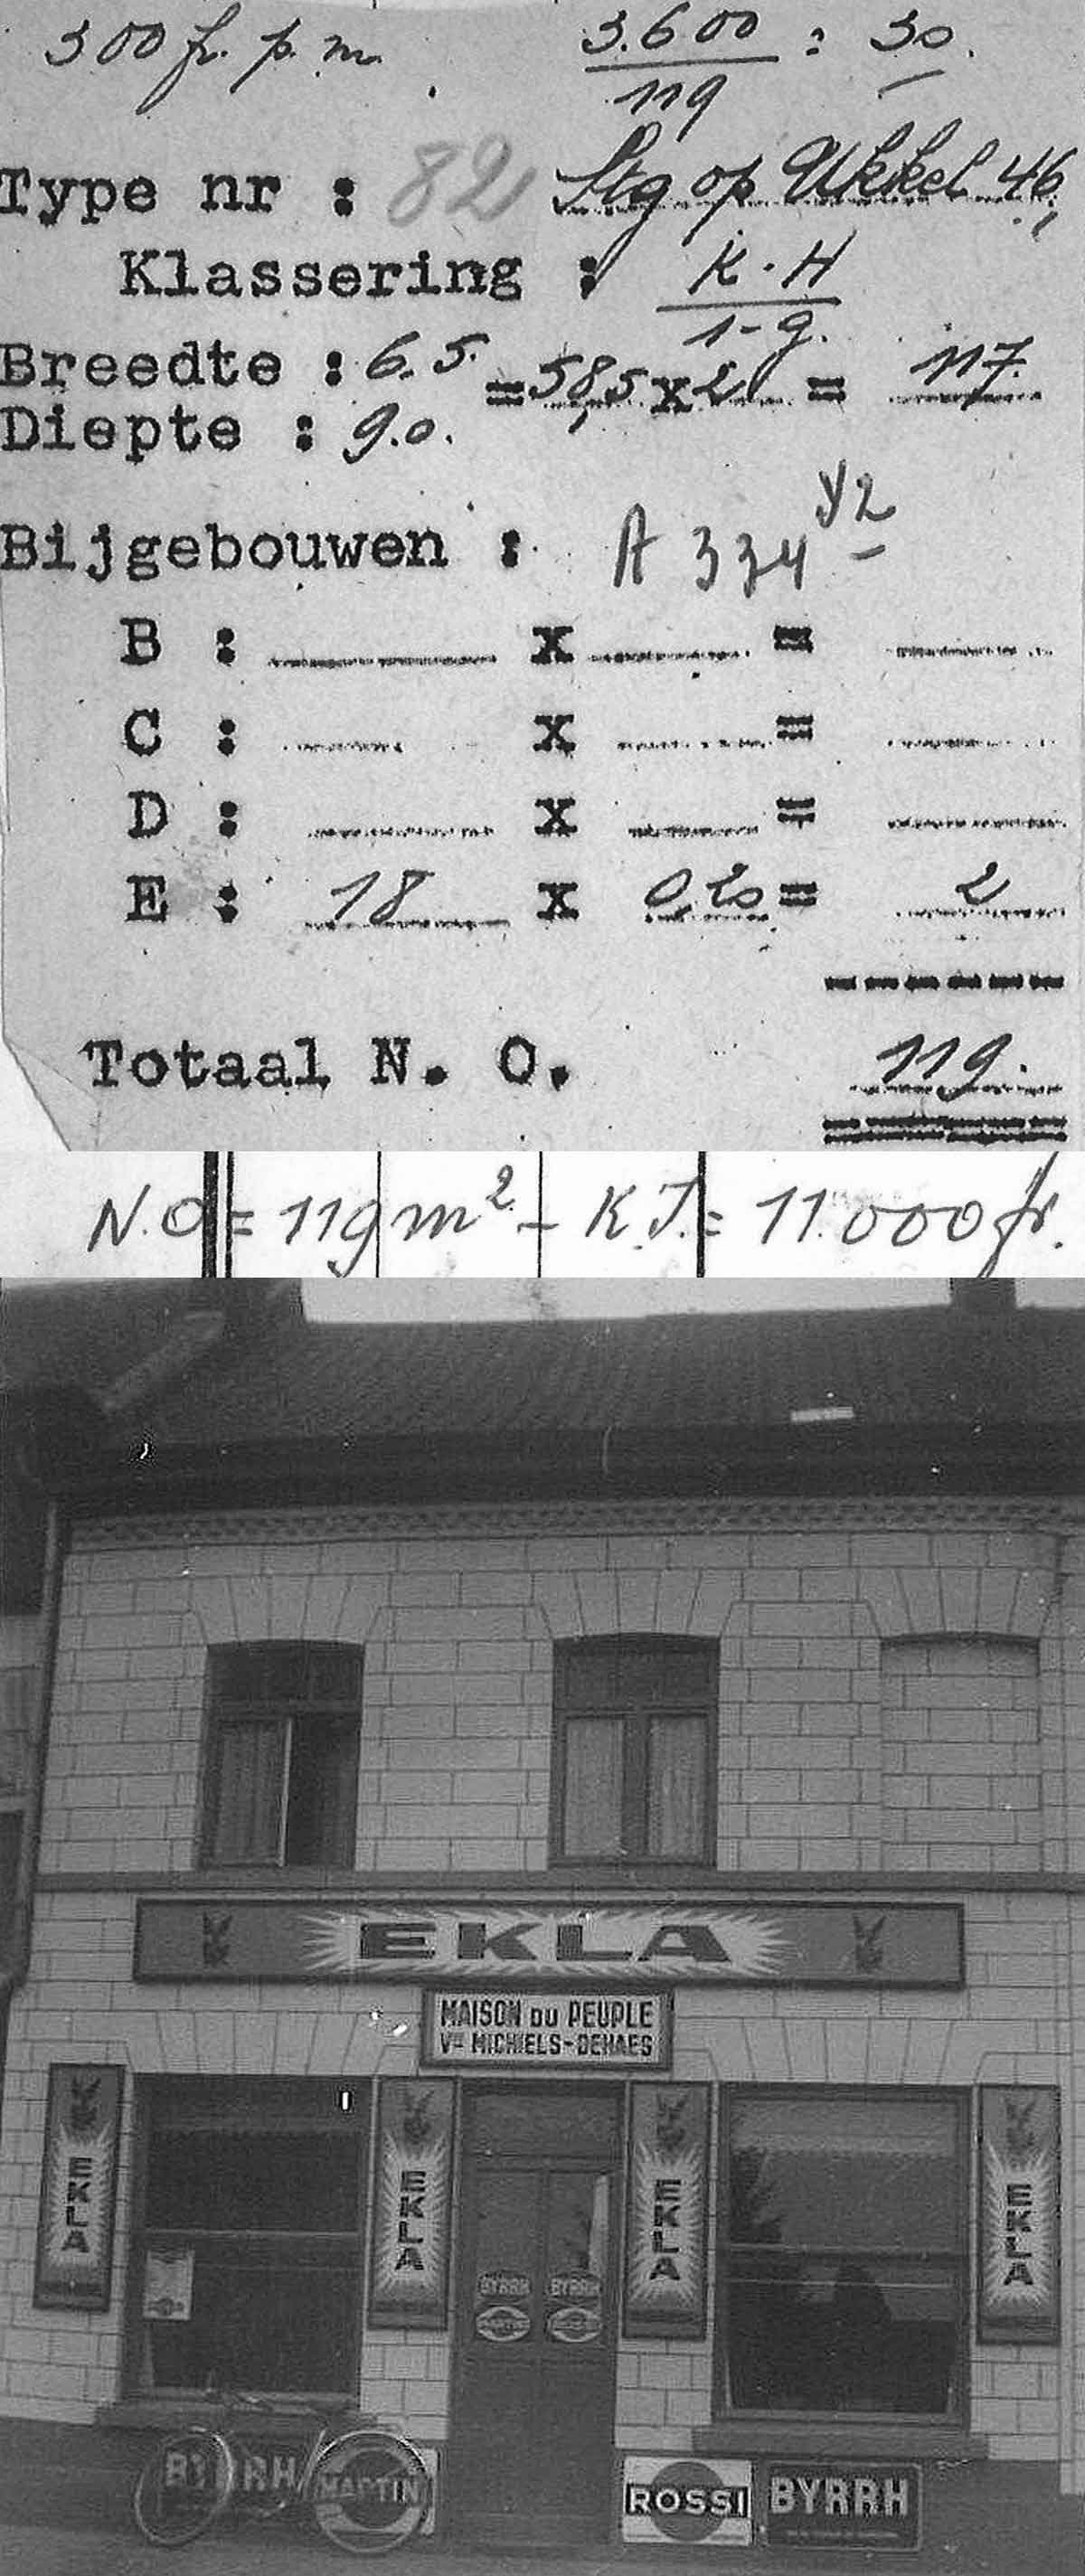 300 fr. p. m. 3.600 : 30.
119
Type nr : 82 Stg op Ukkel 46,
Klassering : K. H
1-g.
Breedte : 6.5. = 58,5 x 2 = 117.
Diepte : 9.0.
Bijgebouwen : A 334 y2
B : x =
C : x =
D : x =
E : 18 x 0,20 = 2
Totaal N. O. 119.
N.O = 119 m² - K.I. = 11.000 fr.
EKLA
MAISON DU PEUPLE
Vve MICHIELS-DEHAES
EKLA
EKLA
EKLA
EKLA
BYRRH BYRRH
MARTINI
BYRRH MARTIN
ROSSI BYRRH